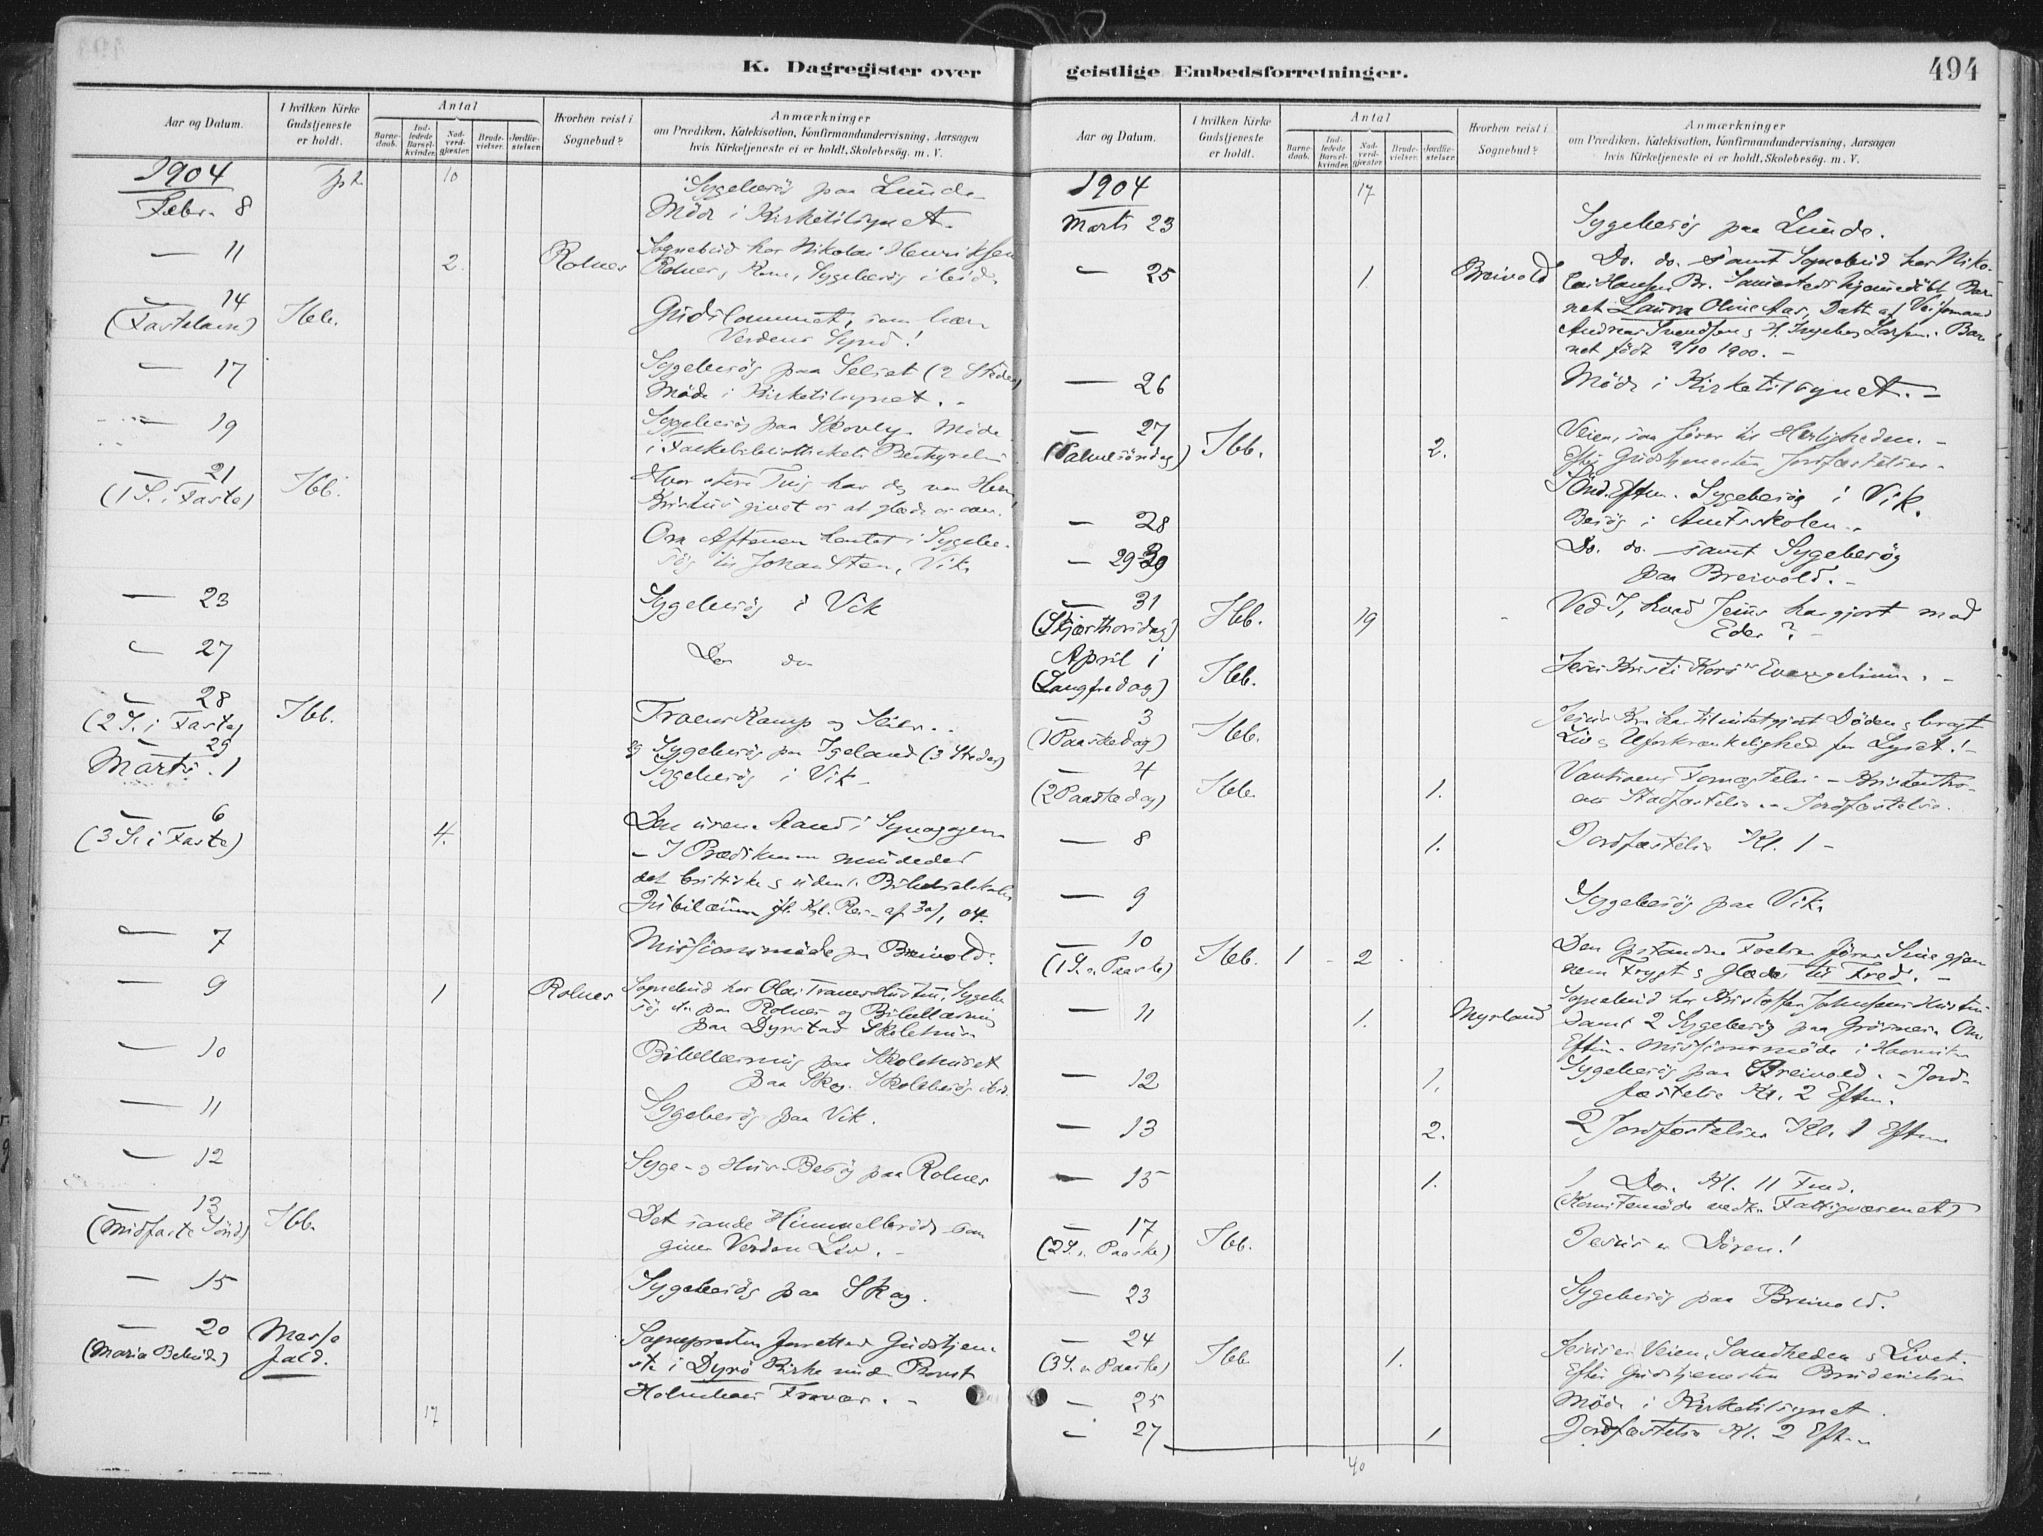 K. Dagregister over
Aar og Datum.
I hvilken Kirke Gudstjeneste er holdt.
Antal
Barne-daab.
Ind-ledede Barsel-kvinder.
Nad-verd-gjæster.
Brude-vielser.
Jordfæ-stelser.
Hvorhen reist i Sognebud?
Anmærkninger
om Prædiken, Katekisation, Konfirmandundervisning, Aarsagen
hvis Kirketjeneste ei er holdt, Skolebesøg. m. V.
1904
10
Sygebesög paa Lunde
Febr. 8
Möde i Kirketilsynet.
— 11
2.
Rolnes
Sognebud hos Nikolai Henriksen
Rolnes, Sygebesög
— 14
(Fastelavn)
Ibb.
Gudslammet, som bær
Verdens Synd!
— 17
Sygebesög paa Selset (2 Steder)
Möde i Kirketilsynet.
— 19
Sygebesög paa Skovly. Möde
i Folkebibliothekets Bestyrelse
— 21
(1 S. i Faste)
Ibb.
Kristus givet os at glæde os over.
Om Aftenen hentet i Sygebe-
sög til Johan Sten, Vik.
— 23
Sygebesög i Vik
— 27
Do do
— 28
(2 S. i Faste)
Ibb.
Troens Kamp og Seier.
29
Sygebesög paa Igeland (3 Steder)
Marts. 1
Sygebesög i Vik
— 6
(3 S. i Faste)
4.
Den urene Aand i Synagogen
— I Prædikenen mindedes
det brittiske & udenl. Bibelselskabs
Jubilæum
— 7
Missionsmöde paa Breivold.
— 9
1
Rolnes
Sognebud hos Olai Tranes Hustru, Sygebe-
sög do paa Rolnes og Bibellæsning
paa Dyrstad Skolehus
— 10
Bibellæsning paa Skolehuset
paa Skog. Skolebesög
— 11
Sygebesög paa Vik.
— 12
Syge- & Hus-Besög paa Rolnes
— 13
(Midfaste Sönd)
Ibb.
Det sande Himmelbröd som
giver Verden Liv.
— 15
Sygebesög paa Skog.
— 20
(Maria Bebud.)
Messe
fald.
Sognepresten forrettede Gudstjene-
ste i Dyrö Kirke under Provst
Holmboes Fravær.
17
geistlige Embedsforretninger.
494
Aar og Datum.
I hvilken Kirke Gudstjeneste er holdt.
Antal
Barne-daab.
Ind-ledede Barsel-kvinder.
Nad-verd-gjæster.
Brude-vielser.
Jordfæ-stelser.
Hvorhen reist i Sognebud?
Anmærkninger
om Prædiken, Katekisation, Konfirmandundervisning, Aarsagen
hvis Kirketjeneste ei er holdt, Skolebesøg. m. V.
1904
17
Marts 23
Sygebesög paa Lunde.
— 25
1
Breivold
Do. do. samt Sognebud hos Niko-
lai Hansen Br. Sammesteds hjemmedöbt Bar-
net Laura Oline Aas, Datt. af
Andreas Svendsen & H. Ingeborg Larsen. Bar-
net födt 9/10 1900.
— 26
Möde i Kirketilsynet.
— 27
(Palmesöndag)
Ibb.
2.
Veien, som förer til Herligheden.
Efter Gudstjenesten Jordfæstelser.
Sönd. Eftm. Sygebesög i Vik.
— 28
Besög i Amtsskolen.
— 29-30
Do. do. samt Sygebesög
paa Breivold.
— 31
(Skjærthorsdag)
Ibb.
19
Ved I, hvad Jesus har gjort mod
Eder?
April 1
(Langfredag)
Ibb.
Jesu Kristi Kors' Evangelium.
— 3
(1 Paaskedag)
Ibb.
Jesus Kr. har tilintetgjort Döden & bragt
Liv & Uforkrænkelighed for Lyset!
— 4
(2 Paaskedag)
Ibb.
1.
Vantroens Fornægtelse – Kristentro-
ens Stadfæstelse. – Jordfæstelse.
— 8
1.
Jordfæstelse Kl. 1 –
— 9
Sygebesög paa Vik.
— 10
(1 S. e. Paaske)
Ibb.
1
2
Den Opstandne Frelser förer Sine gjen-
nem Frygt & Glæde til Fred.
— 11
1.
Myrland
Sognebud hos Kristoffer Johnsens Hustru
samt 2 Sygebesög paa Om
Eftm. Missionsmöde i
— 12
1.
Sygebesög paa Breivold. – Jord-
fæstelse Kl. 2 Eftm.
— 13
2.
2 Jordfæstelser Kl. 1 Eftm
— 15
1.
1 Do. Kl. 11 Fmd.
(Komitemöde vedk. Fattigvæsenet)
— 17
(2 S. e. Paaske)
Ibb.
Jesus er Dören!
— 23
Sygebesög paa Breivold.
— 24
(3 S. e. Paaske)
Ibb
1.
Jesus er Veien, Sandheden & Livet.
Efter Gudstjenesten Brudevielse
— 25
Möde i Kirketilsynet.
— 27
1
Jordfæstelse Kl. 2 Eftm
40